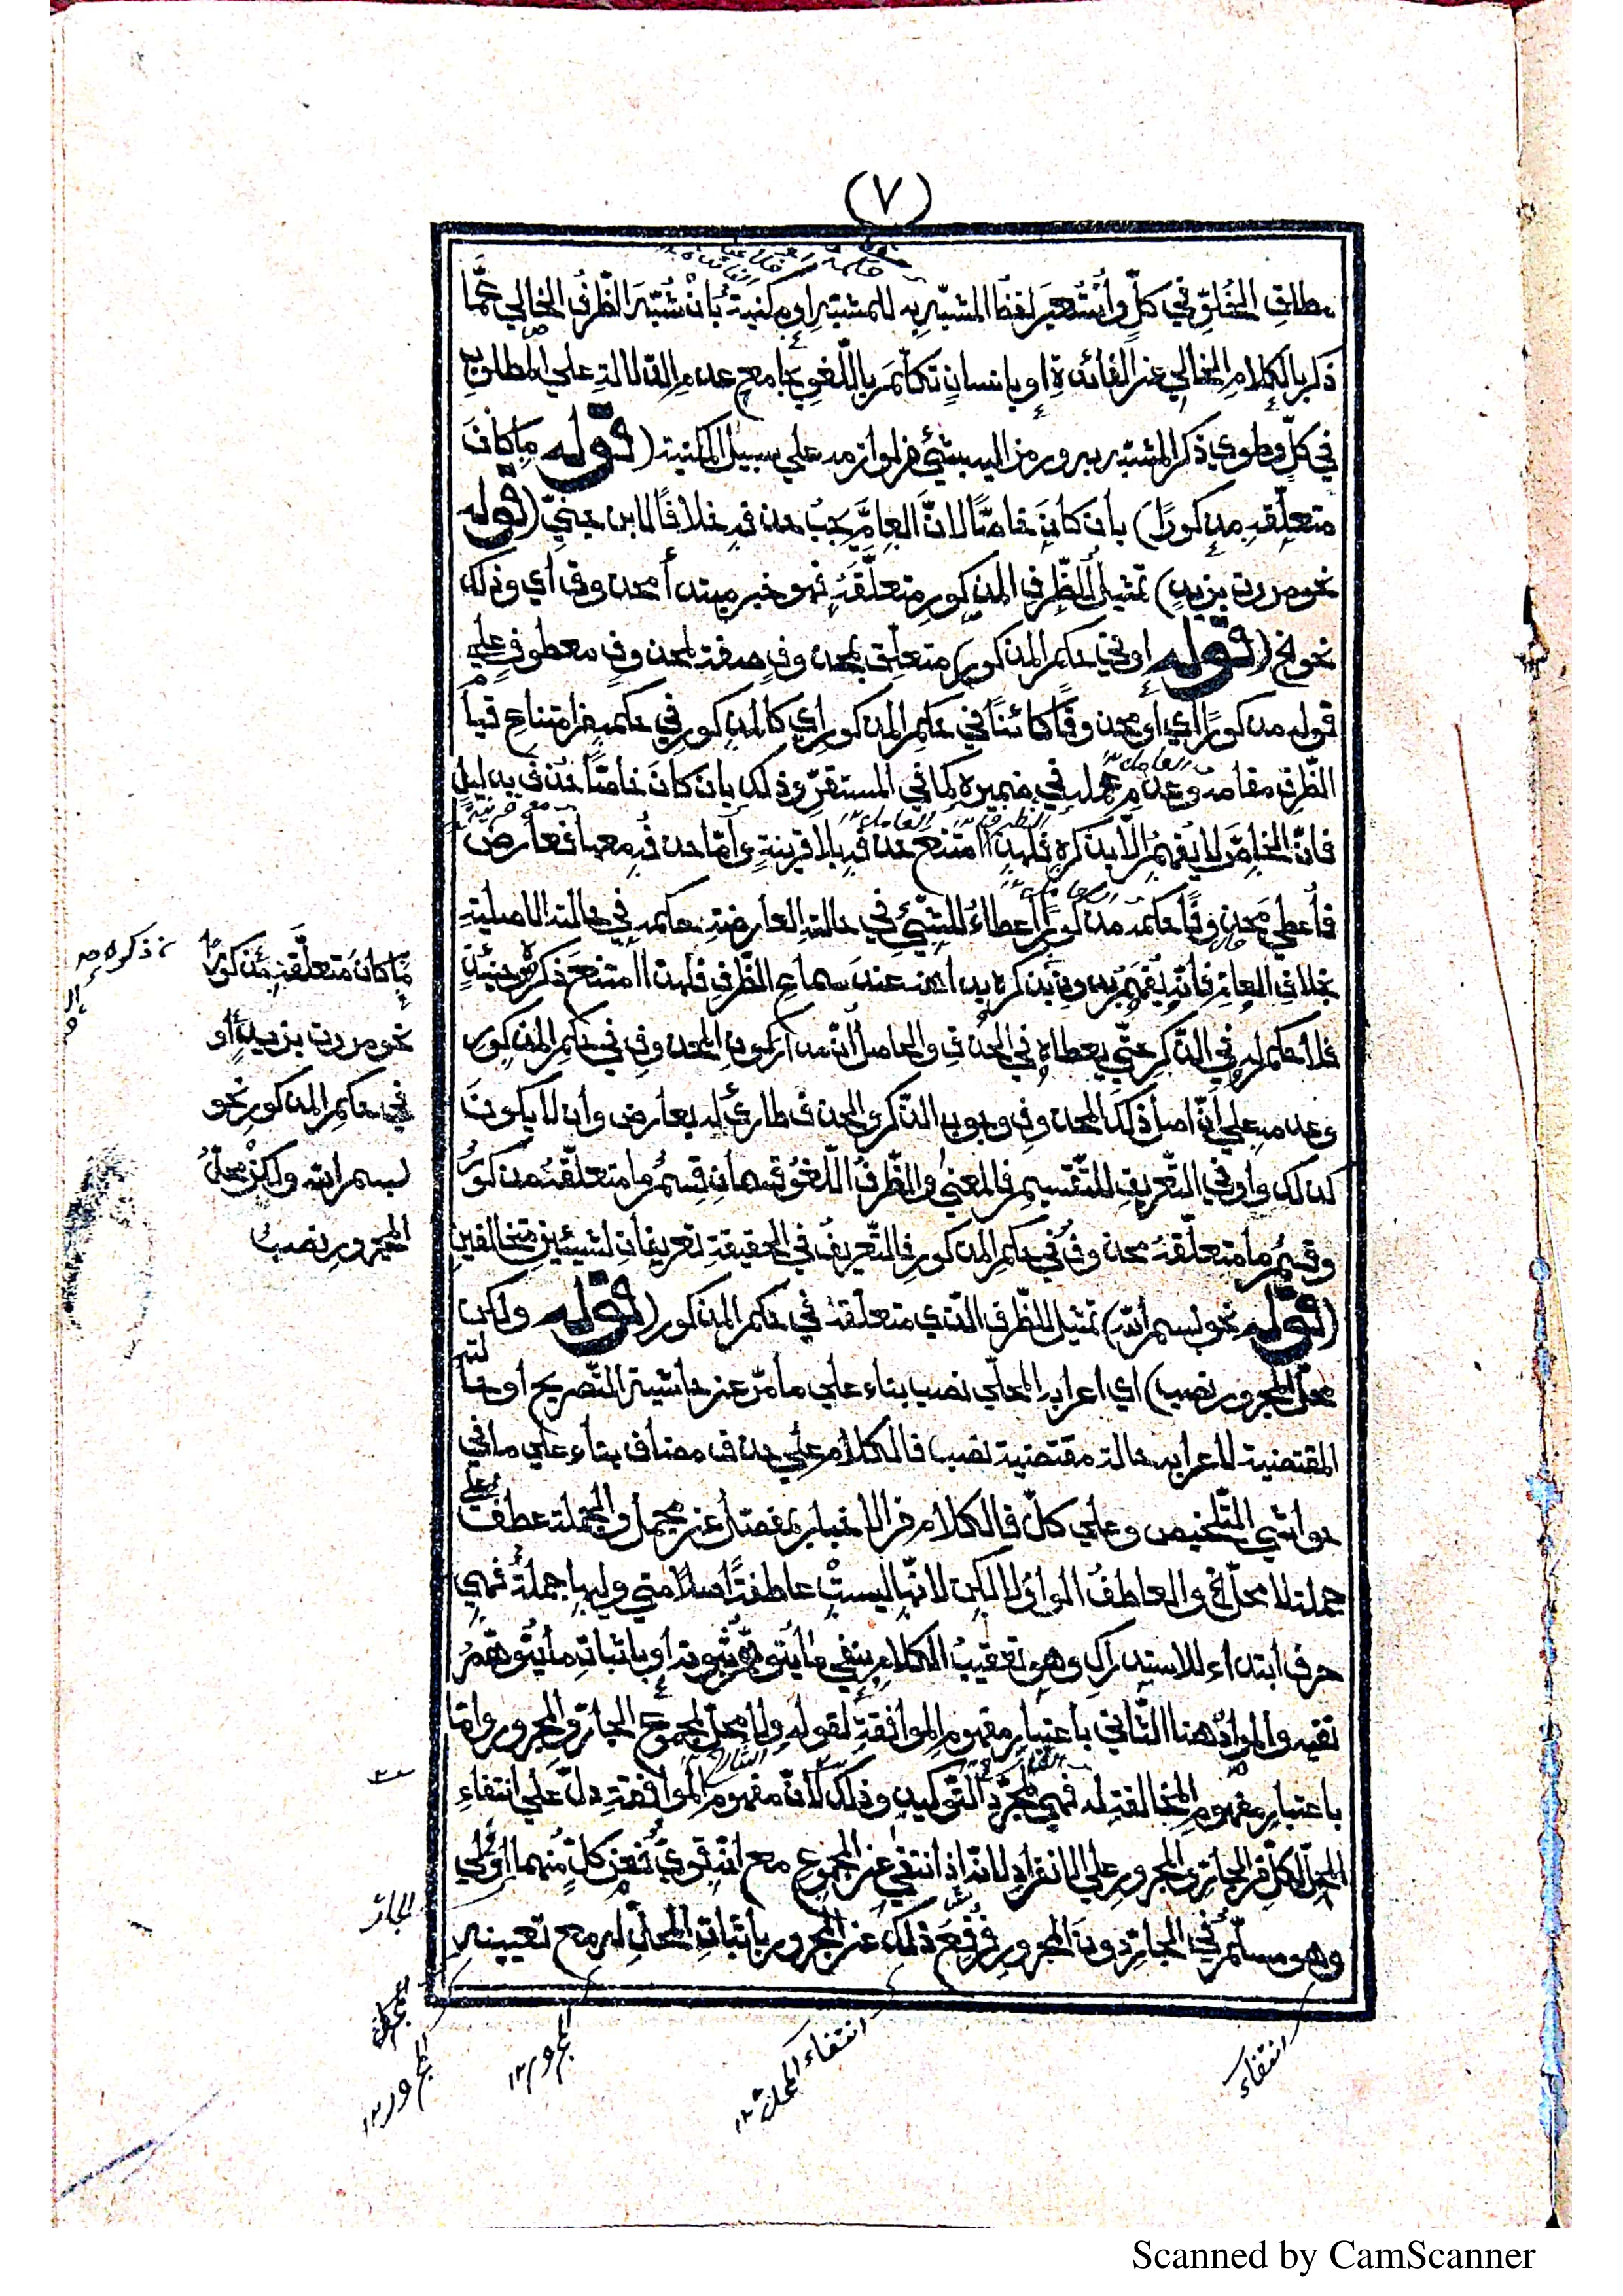 (٧)
بمطلق الخُلوّ في كلّ وأُستُعيرَ لفظُ المشبّه به للمشبّه او مكنية بأنْ شُبّهَ الظّرفُ الخالي عمَّا
ذكر بالكلام الخالي عن الفائدة او بانسانٍ تكلّم باللّغو بجامع عدم الدّلالة علي المطلوب
في كلّ وطوي ذكر المشبّه به ورمز اليه بشئ من لوازمه علي سبيل المكنية (قوله ما كانَ
متعلّقه مذكورًا) بأن كانَ خاصًّا لانّ العامَّ يجبُ حذفه خلافًا لابن جنيّ (قوله
نحو مررت بزيدٍ) تمثيل للظّرف المذكور متعلّقه فهو خبر مبتدأ محذوف أي وذلك
نحو الخ (قوله او في حكم المذكور) متعلّق بمحذوف صفة لمحذوف معطوف علي
قوله مذكورًا أي أو محذوفًا كائنًا في حكم المذكور أي كالمذكور في حكمه من امتناع قيام
الظّرف مقامه وعدم عمله في ضميره كما في المستقرّ وذلك بان كانَ خاصًّا حُذف بدليل
فانّ الخاصّ لا يُفهمُ الّا بذكره فلهذا امتنع حذفه بلا قرينةٍ وأمّا حذفُه معها فعارضٌ
فأُعطي محذوفًا حكمه مذكورًا اعطاءً للشّئِ في حالته العارضة حكمه في حالته الاصلية
بخلاف العامّ فانّه يُفهَمُ بدون ذكره بداهة عند سماع الظّرف فلهذا امتنع ذكره حينئذٍ
فلا حكم له في الذّكر حتّي يعطاه في الحذف والحاصلُ انّ مدار كون المحذوف في حكم المذكور
وعدمه علي أنّ اصل ذلك المحذوف وجوب الذّكر والحذف طارئ له بعارض وأن لا يكونَ
كذلك وأو في التّعريف للتّقسيم في المعني والظّرفُ اللّغو قسمان قسمٌ ما متعلّقهُ مذكورٌ
وقسمٌ ما متعلّقهُ محذوفٌ في حكم المذكور فالتّعريفُ في الحقيقة تعريفان لشيئين متخالفين
(قوله نحو بسم الله) تمثيل للظّرف الّذي متعلّقهُ في حكم المذكور (قوله ولكن
محلّ المجرور نصب) اي اعرابه المحلّي نصب بناء علي ما مرّ عن حاشية التّصريح او حالته
المقتضية لاعرابه حالة مقتضية نصب فالكلام علي حذف مضاف بناء علي ما في
حواشي التّلخيص وعلي كلّ فالكلام من الاخبار بمفصّل عن مجمل والجملة عطف علي
جملة لا محلّ الخ والعاطفُ الواوُ لا لكن لانّها ليستْ عاطفةً اصلا متي وليها جملةٌ فهي
حرف أبتداء للاستدراك وهو تعقيبُ الكلام بنفي ما يُتوهّمُ ثبوته أو باثبات ما يُتوهّمُ
نفيه والمرادُ هنا الثّاني باعتبار مفهوم الموافقة لقوله ولا محلّ لمجموع الجارّ والمجرور وامّا
باعتبار مفهوم المخالفة له فهي لمجرّد التّوكيد وذلك لانّ مفهوم الموافقة دلّ علي انتفاءِ
المحلّ لكلّ من الجارّ والمجرور علي الانفراد لانّه اذا انتفي عن المجموع مع انّه قويّ فعن كلٍّ منهما أولي
وهو مسلّم في الجارّ دونَ المجرور فرُفعَ ذلك عن المجرور باثبات المحلّ له مع تعيينه
العامل
الظرف ١٢
العامل ١٢
مع قرينة
ذكره
ما كانَ متعلَّقه مذكورًا
نحو مررت بزيدٍ أو
في حكم المذكور نحو
بسم الله ولكنْ محلُّ
المجرور نصبٌ
الجار
المجرور ١٢
المجرور ١٢
انتفاء المحل ١٢
انتفاء
Scanned by CamScanner